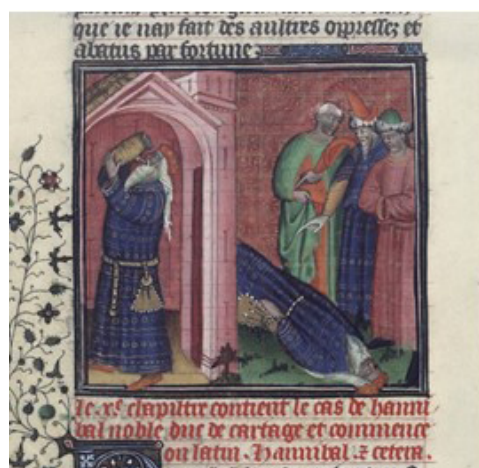 que ie nay fait des aultres oppressez et
abatus par fortune
le x.e chapitre contient le cas de hanni
bal noble duc de cartage et commence
ou latin . hannibal. ⁊ cetera.